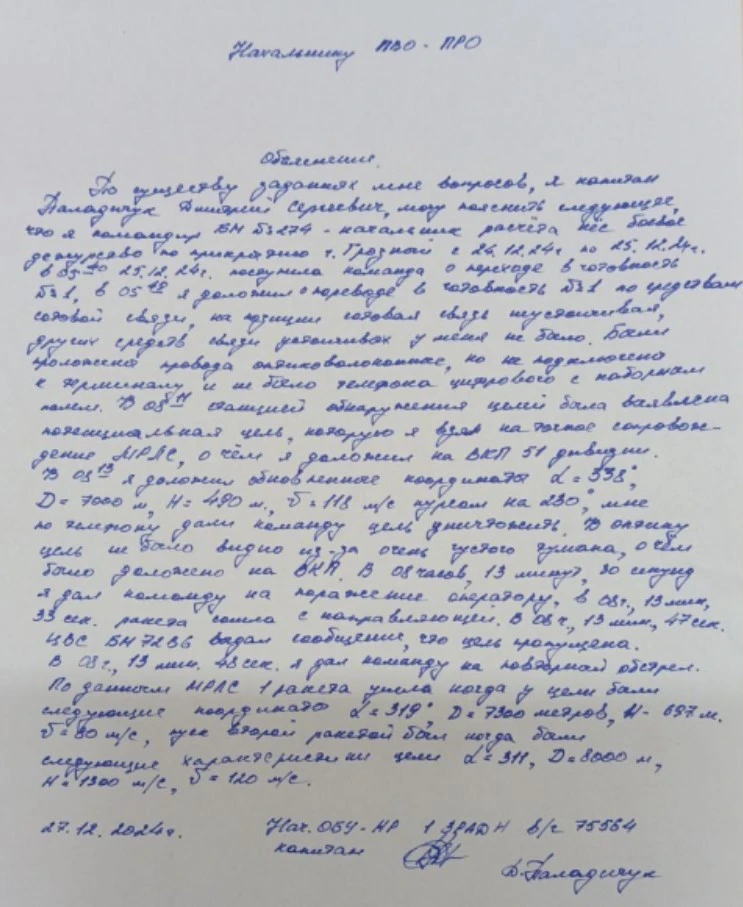 Начальнику ПВО-ПРО
Объяснения.
По существу заданных мне вопросов, я капитан
Паладичук Дмитрий Сергеевич, могу пояснить следующее,
что я командир БМ №274 - начальник расчёта нёс боевое
дежурство по прикрытию г. Грозный с 24.12.24г. по 25.12.24г.
в 05 40 25.12.24г. поступила команда о переходе в готовность
№1, в я доложил о переводе в готовность №1 по средствам
сотовой связи, на позиции сотовая связь неустойчивая,
других средств связи устойчивых у меня не было. Были
проложена провода оптиковолоконные, но не подключены
к терминалу и не было телефона цифрового с наборным
полем. В 08 11 станцией обнаружения целей была выявлена
потенциальная цель, которую я взял на точное сопровож-
дение МРЛС, о чём я доложил на ВКП 51 дивизии.
В 08 13 я доложил обновленные координаты α = 338°,
D = 7000 м, H = 490 м., v = 118 м/с курсом на 230°, мне
по телефону дали команду цель уничтожить. В оптику
цель не было видно из-за очень густого тумана, о чём
было доложено на ВКП. В 08 часов, 13 минут, 30 секунд
я дал команду на поражение оператору, в 08ч., 13 мин,
33 сек. ракета сошла с направляющей. В 08ч., 13 мин, 47 сек.
ЦВС БМ 7286 выдал сообщение, что цель пропущена.
В 08ч., 13 мин. 48 сек. я дал команду на повторный обстрел.
По данным МРЛС 1 ракета ушла когда у цели были
следующие координаты α = 319°, D = 7300 метров, H - 697 м.
v = 80 м/с, пуск второй ракетой был когда были
следующие характеристики цели α = 311, D = 8000 м,
H = 1300 м/с, v = 120 м/с.
27.12.2024г. Нач. ОБУ-НР 1 ЗРАДН в/ч 75564
капитан Д. Паладичук